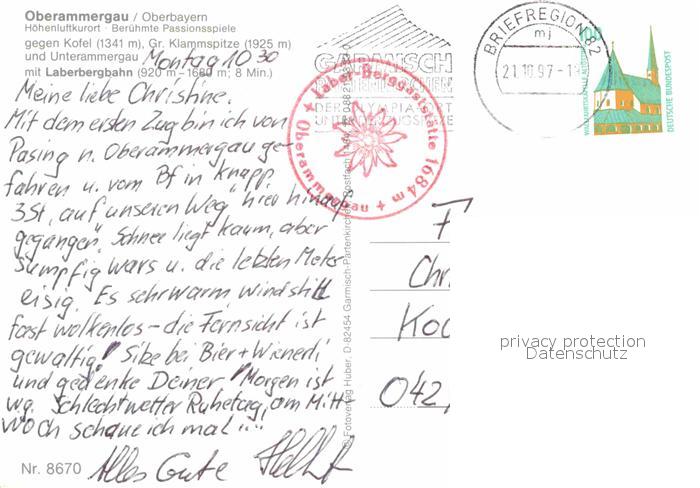 Oberammergau / Oberbayern
Höhenluftkurort · Berühmte Passionsspiele
gegen Kofel (1341 m), Gr. Klammspitze (1925 m)
und Unterammergau
mit Laberbergbahn (920 m - 1680 m; 8 Min.)
Montag 10 30
Meine liebe Christine.
Mit dem ersten Zug bin ich von
Pasing n. Oberammergau ge-
fahren u. vom Bf in knapp
3 St. "auf unseren Weg" hier hinauf
gegangen. Schnee liegt kaum, aber
sumpfig wars u. die letzten Meter
eisig. Es sehr warm windstill
fast wolkenlos - die Fernsicht ist
gewaltig! Sitze bei Bier + Wienerli
und gedenke Deiner! Morgen ist
wg. Schlechtwetter Ruhetag, am Mitt-
woch schaue ich mal....
Alles Gute
Nr. 8670
© Fotoverlag Huber, D-82454 Garmisch-Partenkirchen, Postfach
GARMISCH
PARTENKIRCHEN
DER OLYMPIAORT
UNTER DER ZUGSPITZE
Laber-Berggaststätte 1684 m
Oberammergau
BRIEFREGION 82
mj
21.10.97
100
DEUTSCHE BUNDESPOST
F
Chr
Koc
042,
privacy protection
Datenschutz